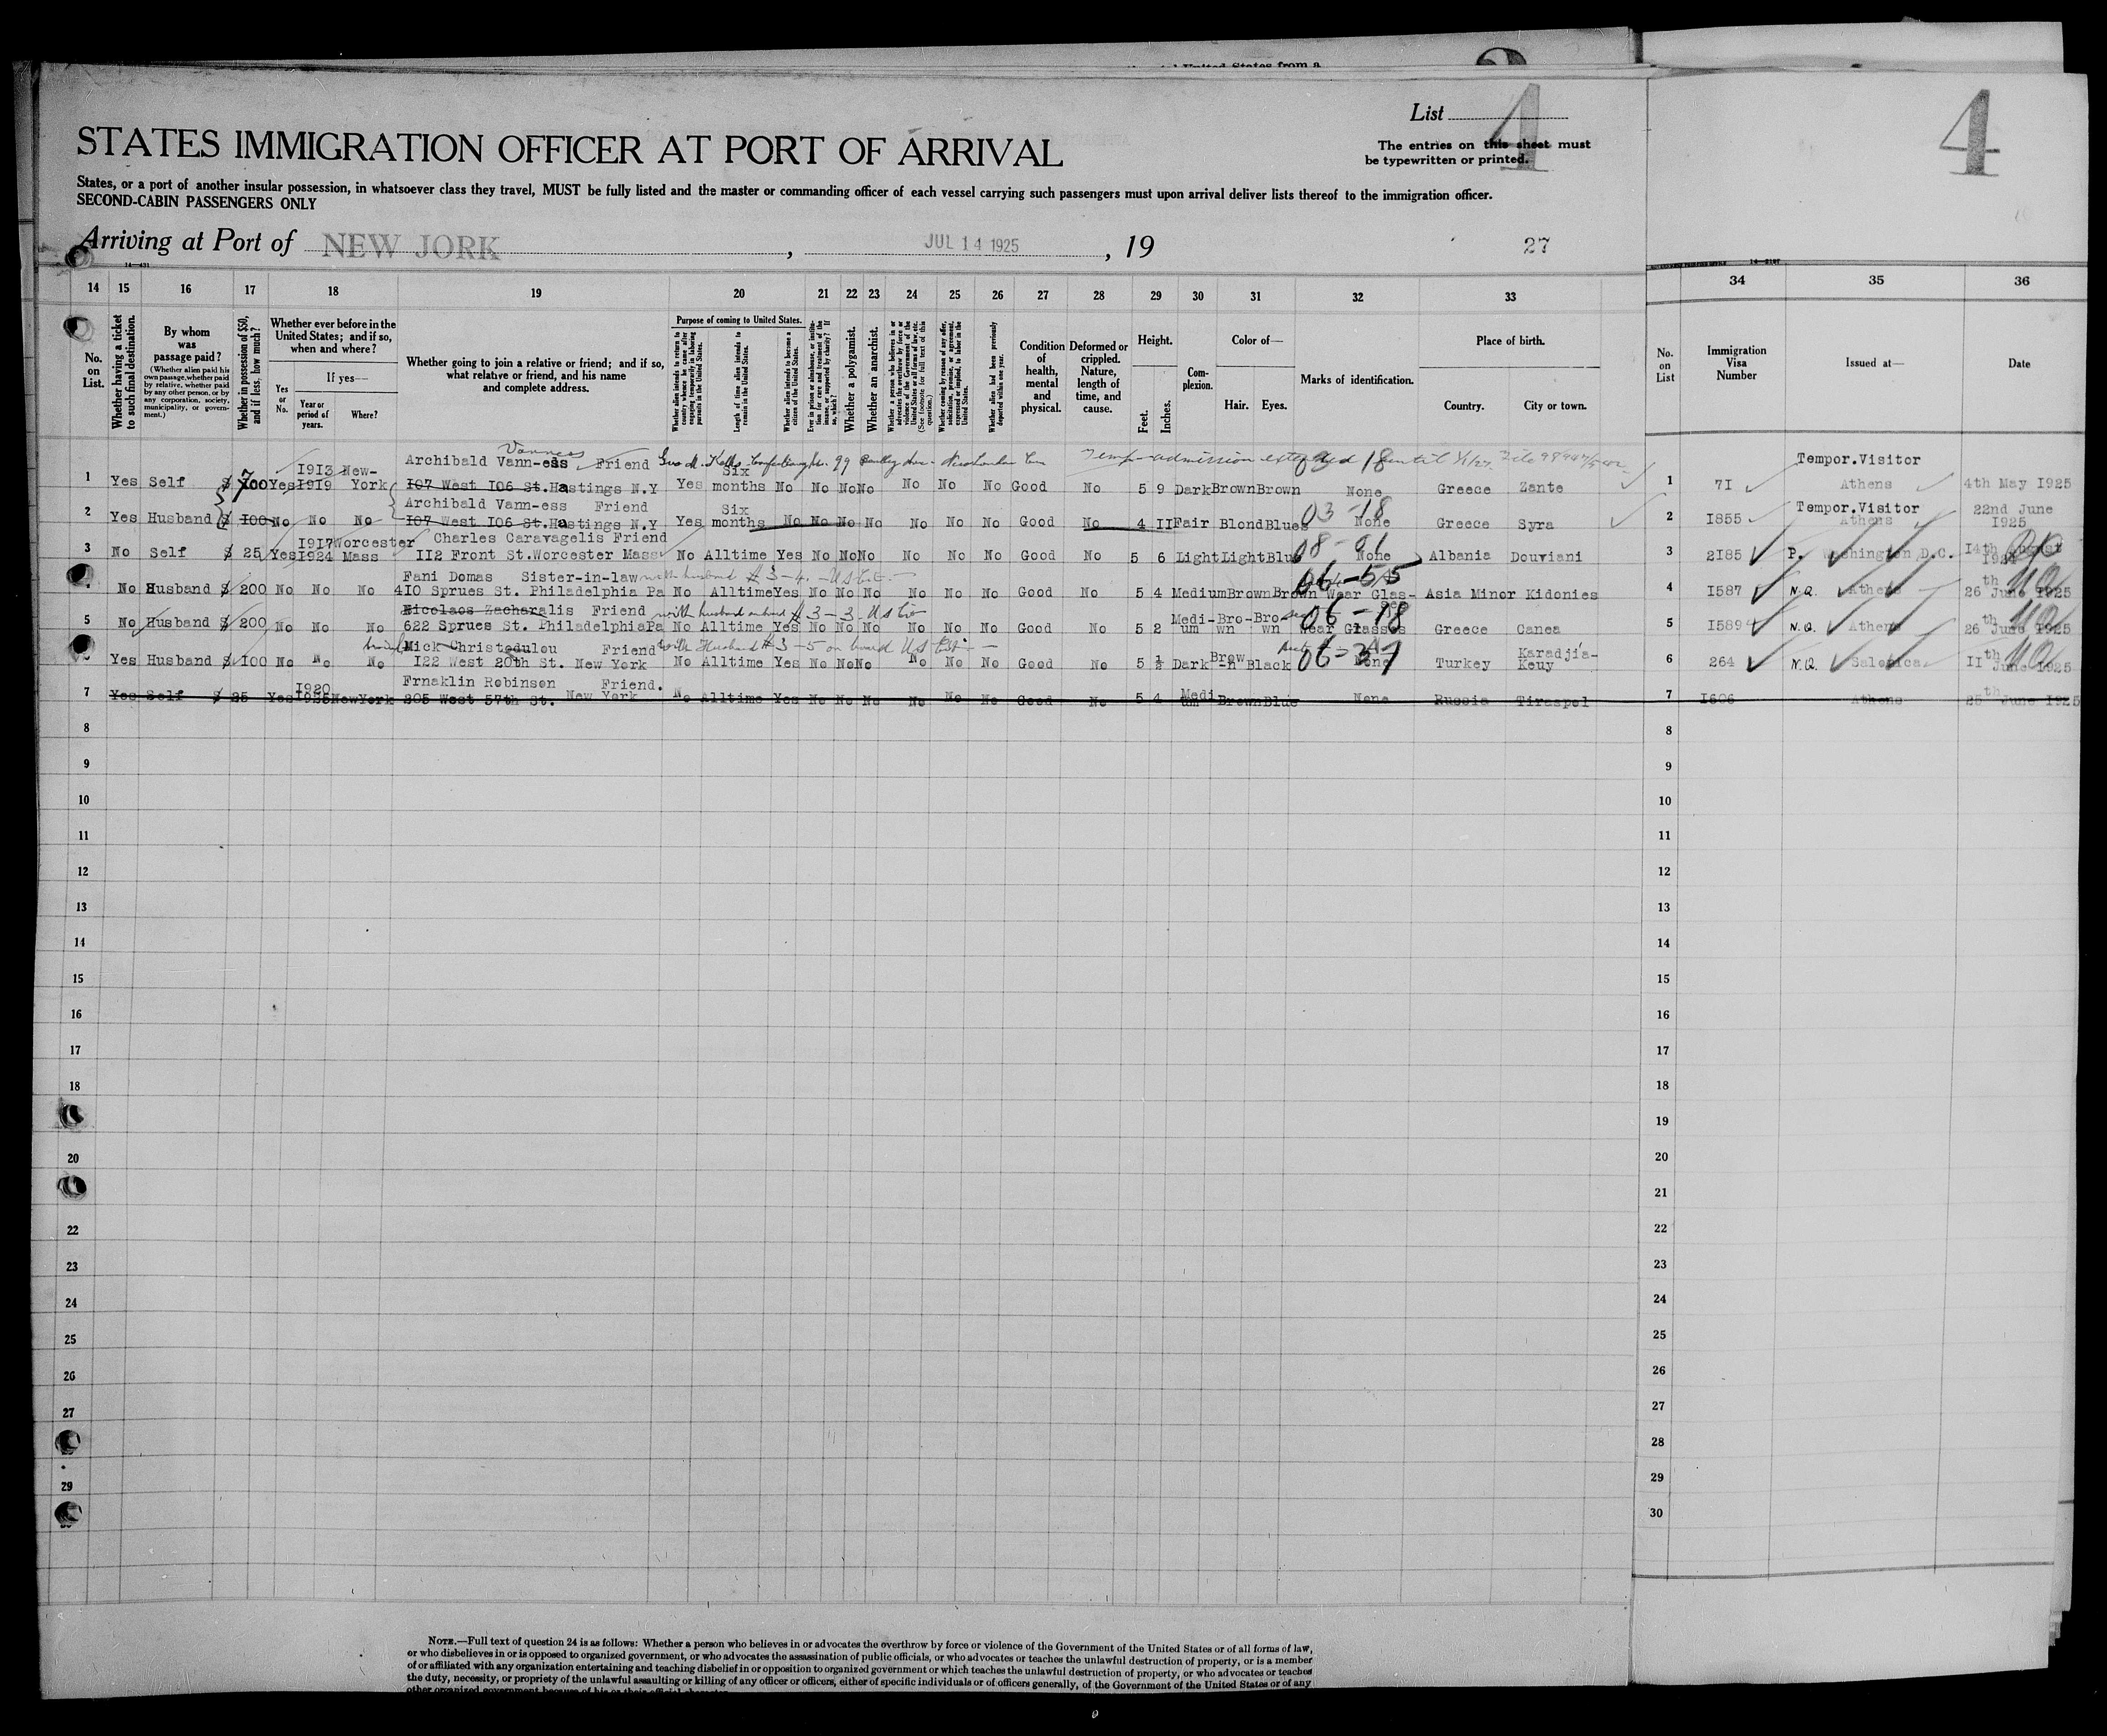 List 4
4
STATES IMMIGRATION OFFICER AT PORT OF ARRIVAL
The entries on this sheet must
be typewritten or printed.
States, or a port of another insular possession, in whatsoever class they travel, MUST be fully listed and the master or commanding officer of each vessel carrying such passengers must upon arrival deliver lists thereof to the immigration officer.
SECOND-CABIN PASSENGERS ONLY
Arriving at Port of NEW JORK, JUL 14 1925, 19 27
14 15 16 17 18 19 20 21 22 23 24 25 26 27 28 29 30 31 32 33 34 35 36
No. on List.
Whether having a ticket to such final destination.
By whom was passage paid?
(Whether alien paid his own passage, whether paid by relative, whether paid by any other person, or by any corporation, society, municipality, or government.)
Whether in possession of $50, and if less, how much?
Whether ever before in the United States; and if so, when and where?
Yes or No.
If yes—
Year or period of years.
Where?
Whether going to join a relative or friend; and if so, what relative or friend, and his name and complete address.
Purpose of coming to United States.
Whether alien intends to return to country whence he came after engaging temporarily in laboring pursuits in the United States.
Length of time alien intends to remain in the United States.
Whether alien intends to become a citizen of the United States.
Whether a polygamist.
Whether an anarchist.
Whether alien had been previously deported within one year.
Condition of health, mental and physical.
Deformed or crippled. Nature, length of time, and cause.
Height.
Feet.
Inches.
Complexion.
Color of—
Hair. Eyes.
Marks of identification.
Place of birth.
Country. City or town.
No. on List
Immigration Visa Number
Issued at—
Date
Vanness
1 Yes Self $ 700 Yes 1913 1919 New-York Archibald Vann-ess Friend
107 West 106 St. Hastings N.Y Yes Six months No No No No No No No Good No 5 9 Dark Brown Brown None Greece Zante 1 71 Tempor.Visitor Athens 4th May 1925
2 Yes Husband $ 100 No No No Archibald Vann-ess Friend
107 West 106 St. Hastings N.Y Yes Six months No No No No No No No Good No 4 11 Fair Blond Blues 03-18 None Greece Syra 2 1855 Tempor.Visitor Athens 22nd June 1925
3 No Self $ 25 Yes 1917 1924 Worcester Mass Charles Caravagelis Friend
112 Front St. Worcester Mass No Alltime Yes No No No No No No Good No 5 6 Light Light Blue 08-01 None Albania Douviani 3 2185 P. Washington D.C. 14th August
4 No Husband $ 200 No No No Fani Domas Sister-in-law
410 Sprues St. Philadelphia Pa No Alltime Yes No No No No No No Good No 5 4 Medium Brown Brown 06-55 Wear Glas-ses Asia Minor Kidonies 4 1587 N.Q. Athens 26th June 1925
5 No Husband $ 200 No No No Nicolaos Zacharalis Friend
622 Sprues St. Philadelphia Pa No Alltime Yes No No No No No No Good No 5 2 Medi-um Bro-wn Bro-wn 06-18 Wear Glasses Greece Canea 5 1589 N.Q. Athens 26th June 1925
6 Yes Husband $ 100 No No No Mick Christodulou Friend
122 West 20th St. New York No Alltime Yes No No No No No No Good No 5 1/2 Dark Brow-n Black 06-37 None Turkey Karadjia-Keuy 6 264 N.Q. Salonica 11th June 1925
7 Yes Self $ 25 Yes 1920 1925 New York Frnaklin Robinson Friend.
205 West 57th St. New York No Alltime Yes No No No No No No Good No 5 4 Medi um Brown Blue None Russia Tiraspol 7 1606 Athens 25th June 1925
8 8
9 9
10 10
11 11
12 12
13 13
14 14
15 15
16 16
17 17
18 18
19
20 20
21
22 22
23 23
24 24
25 25
26 26
27 27
28
29 29
30
NOTE.—Full text of question 24 is as follows: Whether a person who believes in or advocates the overthrow by force or violence of the Government of the United States or of all forms of law,
or who disbelieves in or is opposed to organized government, or who advocates the assassination of public officials, or who advocates or teaches the unlawful destruction of property, or is a member
of or affiliated with any organization entertaining and teaching disbelief in or opposition to organized government or which teaches the unlawful destruction of property, or who advocates or teaches
the duty, necessity, or propriety of the unlawful assaulting or killing of any officer or officers, either of specific individuals or of officers generally, of the Government of the United States or of any